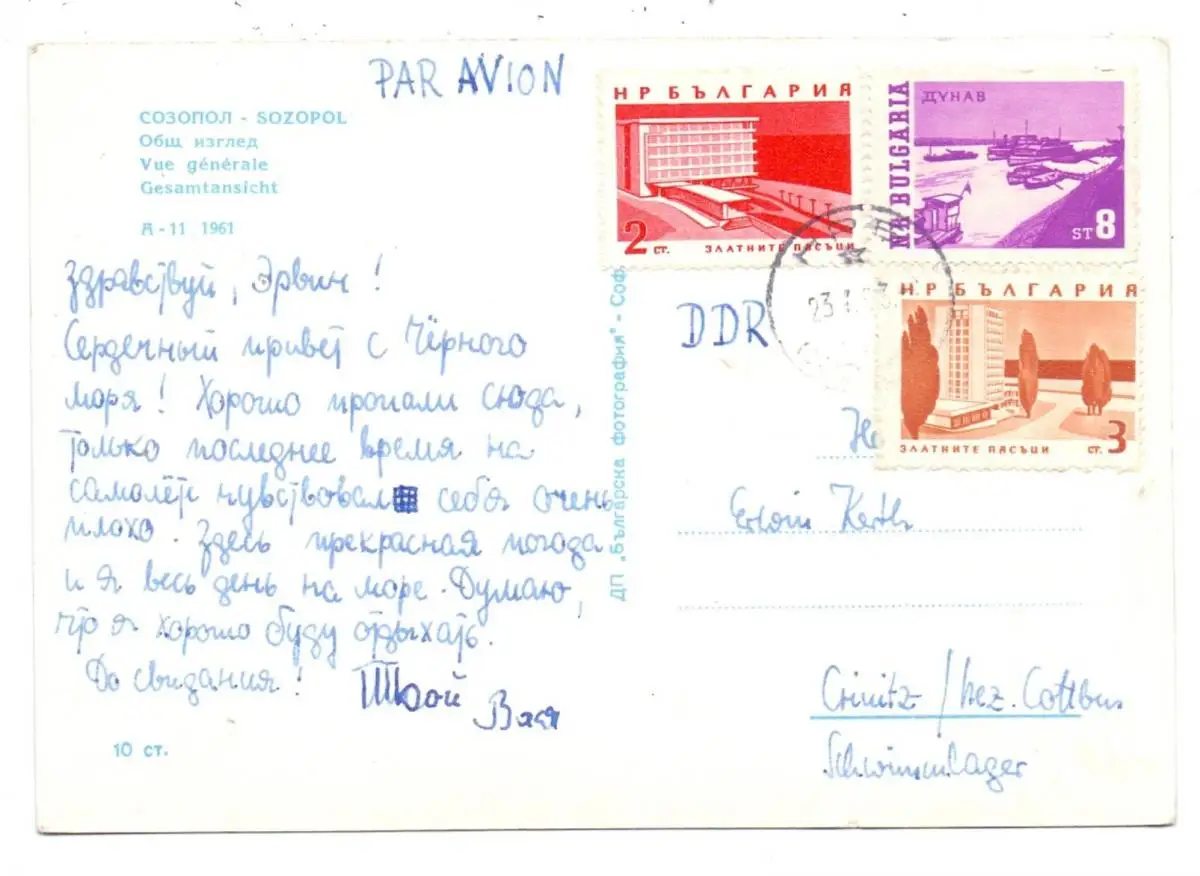 PAR AVION
СОЗОПОЛ - SOZOPOL
Общ изглед
Vue générale
Gesamtansicht
А - 11 1961
Здравствуй, Эрвин!
Сердечный привет с Чёрного
моря! Хорошо пропали сюда,
только последнее время на
самолёте чувствовал себя очень
плохо. Здесь прекрасная погода
и я весь день на море. Думаю,
что я хорошо буду отдыхать.
До свидания! Твой
Вася
10 ст.
ДП „Българска фотография" - Соф
НР БЪЛГАРИЯ
2 СТ. ЗЛАТНИТЕ ПЯСЪЦИ
NR BULGARIA
ДУНАВ
ST 8
НР БЪЛГАРИЯ
ЗЛАТНИТЕ ПЯСЪЦИ СТ. 3
DDR
Erwin Kerth
Crinitz / bez. Cottbus
Schwimmlager